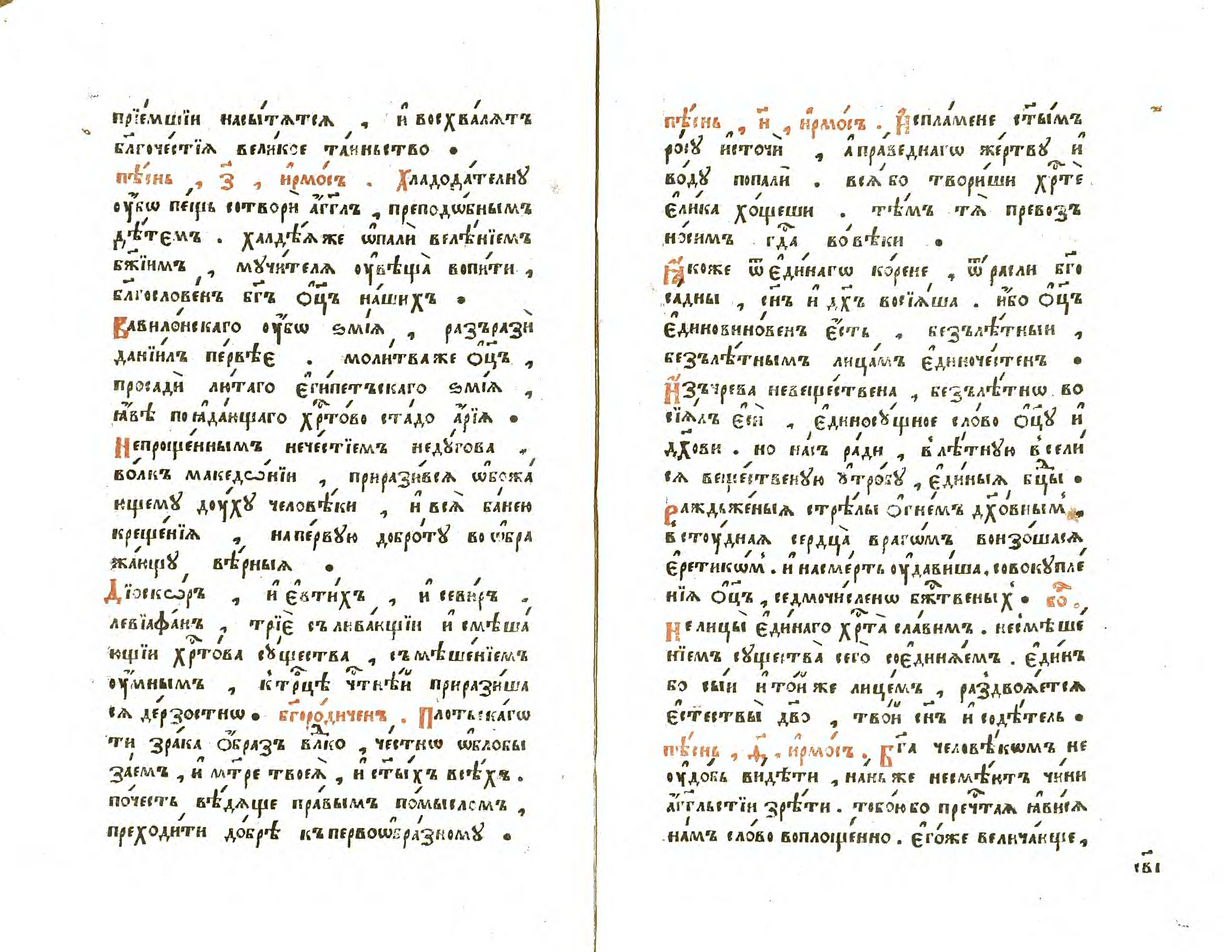 прїе́мшїи насы́тѧтсѧ , и҆ восхвалѧ́тъ
бл҃гоче́стїѧ вели́кое та́иньство .
пѣ́снь , з҃ , і҆рмо́съ . Хладода́телну
ᲂу҆́бѡ пе́щь сотворѝ а҆́гг҃лъ , преподо́бнымъ
дѣ́темъ . халдѣ́ѧ же ѡ҆палѝ велѣ́нїемъ
бж҃їимъ , мꙋчи́телѧ ᲂу҆вѣща̀ вопи́ти ,
благослове́нъ бг҃ъ ѻ҆ц҃ъ на́шихъ .
Вавило́нскаго ᲂу҆́бѡ ѕмі́ѧ , разъразѝ
данїи́лъ пе́рвѣе . моли́тва же ѻ҆ц҃ъ ,
просадѝ лю́таго є҆гі́петъскаго ѕмі́ѧ ,
ꙗ҆́вѣ поꙗда́ющаго хр҃то́во ста́до а҆́рїѧ .
Непроще́ннымъ нече́стїемъ недꙋ́гова ,
во́лкъ македѡ́нїи , прирази́всѧ ѡ҆божа́
ющемꙋ дᲂу́хꙋ человѣ́ки , и҆ всѧ̀ ба́нею
креще́нїѧ , на пе́рвꙋю добро́тꙋ во ѡ҆бра
жа́ющꙋ вѣ́рныѧ .
Дїо́скѡръ , и҆ є҆вти́хъ , и҆ севи́ръ .
левїаѳа́нъ , трїѐ съливаю́щїи и҆ смѣша́
ющїи хр҃то́ва сꙋщества̀ , съмѣше́нїемъ
ᲂу҆́мнымъ , к тр҃цѣ чт҃нѣ́и прирази́ша
сѧ де́рзостнѡ . бг҃оро́диченъ . Плотьска́гѡ
ти зра́ка ѻ҆́бразъ вл҃ко , че́стнѡ ѡ҆блобы
за́емъ , и҆ мт҃ре твоеѧ̀ , и҆ ст҃ы́хъ всѣ́хъ .
по́честь вѣ́дѧще пра́вымъ по́мысломъ ,
преходи́ти до́брѣ къ первоѡбра́зномꙋ .
пѣ́снь , и҃ , і҆рмо́съ . И҆спла́мене ст҃ы́мъ
ро́сꙋ и҆сточѝ , а҆ пра́веднагѡ же́ртвꙋ и҆
во́дꙋ попалѝ . всѧ̑ бо твори́ши хр҃тѐ
є҆ли́ка хо́щеши . тѣ́мъ тѧ̀ превоз
но́симъ гд҃а во вѣ́ки .
Ꙗ҆́коже ѿ є҆ди́нагѡ ко́рене , ѿра́сли бг҃о
са́дны , сн҃ъ и҆ дх҃ъ восїѧ́ша . и҆́бо ѻ҆ц҃ъ
є҆диновино́венъ є҆́сть , безълѣ́тныи ,
безълѣ́тнымъ лица́мъ є҆диноче́стенъ .
И҆зъ чре́ва невеще́ствена , безълѣ́тнѡ во
сїѧ́лъ є҆сѝ , є҆диносꙋ́щное сло́во ѻ҆ц҃ꙋ и҆
дх҃ови . но на́съ ра́ди , в лѣ́тнꙋю всели́
сѧ веще́ственꙋю ᲂу҆тро́бꙋ , є҆ди́ныѧ бц҃ы .
Раждьже́ныѧ стрѣ́лы ѻ҆гне́мъ дх҃о́внымъ ,
в стᲂу́днаѧ сердца̀ врагѡ́мъ вонзо́шасѧ
є҆ретикѡ́м . и҆ на сме́рть ᲂу҆дави́ша , совокꙋпле́
нїѧ ѻ҆ц҃ъ , седмочи́сленѡ бж҃твеныхъ . бо҃ .
На лицы̀ є҆ди́наго хр҃та̀ сла́вимъ . не смѣше
нїемъ сꙋщества̀ сего̀ соединѧ́емъ . є҆ди́нъ
бо сы́и и҆ то́и же лице́мъ , раздвоѧ́етсѧ
є҆стествы̀ дво̀ , тво́й сн҃ъ и҆ содѣ́тель .
пѣ́снь , д҃ , і҆рмо́съ . Бг҃а человѣ́кѡмъ не
ᲂу҆до́бь ви́дѣти , нань же не смѣ́ютъ чи́ни
а҆́гг҃льстїи зрѣ́ти . тобо́ю бо преч҃таѧ ꙗ҆ви́сѧ
на́мъ сло́во воплоще́нно . є҆го́же велича́юще ,
св҃і